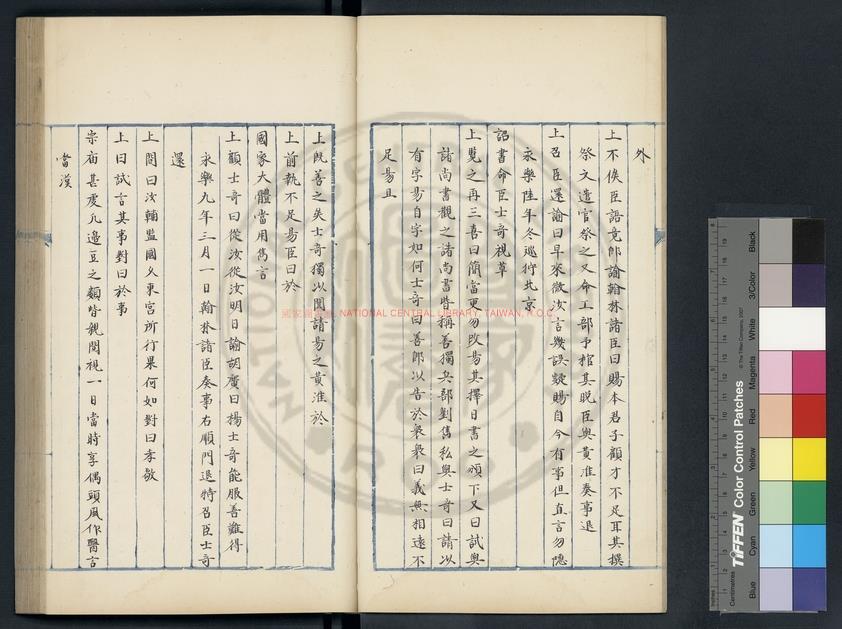 外
上不俟臣語竟即諭翰林諸臣曰賜本君子顧才不足耳其撰
祭文遣官祭之又命工部予棺其既臣與黃淮奏事退
上召臣還諭曰早來微汝言幾誤疑賜自今有事但直言勿隱
永樂陸年冬巡狩北京
詔書命臣士奇視草
上覽之再三喜曰簡當更勿改易其擇日書之頒下又曰試與
諸尚書觀之諸尚書皆稱善獨兵部劉雋私與士奇曰請以
有字易自字如何士奇曰善即以告於衆衆曰義無相遠不
足易且
上既善之矣士奇獨以聞請易之黃淮於
上前執不足易臣曰於
國家大體當用雋言
上顧士奇曰從汝從汝明日諭胡廣曰楊士奇能服善難得
永樂九年三月一日翰林諸臣奏事右順門退特召臣士奇
還
上問曰汝輔監國久東宮所行果何如對曰孝敬
上曰試言其事對曰於事
宗庙甚虔凡邉豆之類皆親閱視一日當時享偶頭風作醫言
當漢
國家圖書館, NATIONAL CENTRAL LIBRARY, TAIWAN, R.O.C.
TIFFEN Color Control Patches
© The Tiffen Company, 2007
Centimetres
Inches
Blue
Cyan
Green
Yellow
Red
Magenta
White
3/Color
Black